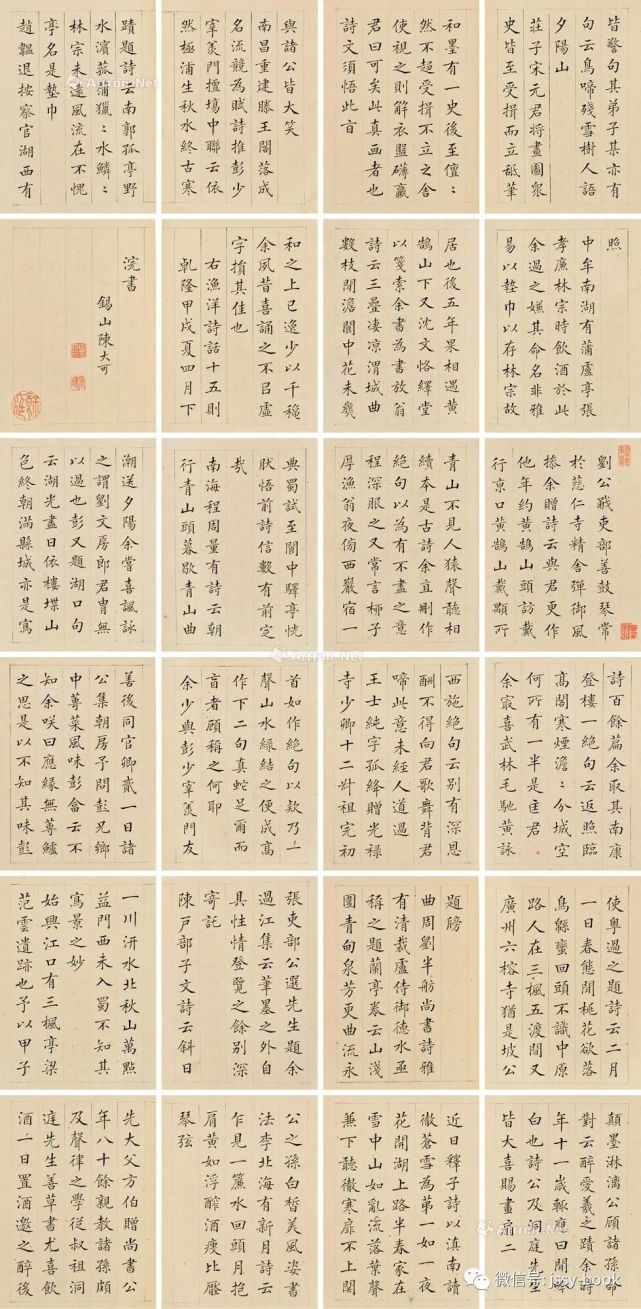 皆警句其弟子某亦有
句云鳥啼殘雪樹人語
夕陽山
莊子宋元君將畫圖眾
史皆至受揖而立舐筆
和墨有一史後至儃〻
然不趨受揖不立之舍
使視之則解衣盤礴臝
君曰可矣此真畫者也
詩文須悟此旨
與諸公皆大笑
南昌重建滕王閣落成
名流競為賦詩推彭少
宰羨門擅場中聯云依
然極浦生秋水終古寒
蹟題詩云南郭孤亭野
水濱菰蒲獵〻水鱗〻
林宗未遠風流在不愧
亭名是墊巾
趙韞退按察官湖西有
照
中牟南湖有蒲盧亭張
孝廉林宗時飲酒於此
余過之嫌其命名非雅
易以墊巾以存林宗故
居也後五年果相遇黃
鶴山下又沈文恪繹堂
以箋索余書為書放翁
詩云三疊淒涼渭城曲
數枝閒澹閬中花未幾
和之上已逸少以千穐
余夙昔喜誦之不㠯虛
字損其佳也
右漁洋詩話十五則
乾隆甲戌夏四月下
浣書
錫山陳大可
劉公㦸吏部善鼓琴常
於慈仁寺精舍彈御風
摻余贈詩云與君更作
他年約黃鶴山頭訪戴
行京口黃鶴山戴顒所
青山不見人猿聲聽相
續本是古詩余宜刪作
絕句以為有不盡之意
程深服之又常言柳子
厚漁翁夜傍西巖宿一
典蜀試至閬中驛亭恍
肰悟前詩信數有前定
哉
南海程周量有詩云朝
行青山頭暮歇青山曲
潮送夕陽余嘗喜諷詠
之謂劉文房郎君冑無
以過也彭又題湖口句
云湖光盡日依樓堞山
色終朝滿縣城亦是寫
詩百餘篇余取其南康
登樓一絕句云返照臨
高閣寒煙澹〻分城空
何所有一半是匡君
余最喜武林毛馳黃詠
西施絕句云別有深恩
酬不得向君歌舞背君
啼此意未經人道過
王士純字孤絳贈光祿
寺少卿十二叔祖完初
首如作絕句以欸乃一
聲山水綠結之便成高
作下二句真蛇足爾而
盲者顧稱之何耶
余少與彭少宰羨門友
善後同官卿貳一日諸
公集朝房予問彭兄鄉
中蓴菜風味彭僉云不
知余咲曰應緣無蓴鱸
之思是以不知其味彭
使粵過之題詩云二月
一日春態閒桃花欲落
鳥縣蠻回頭不識中原
路人在三楓五渡間又
廣州六榕寺猶是坡公
題牓
曲周劉半舫尚書詩雅
有清裁盧侍御德水亟
稱之題蘭亭卷云山淺
圍青甸泉芳更曲流永
張吏部公選先生題余
過江集云筆墨之外自
具性情登覽之餘別深
寄託
陳戶部子文詩云斜日
一川汧水北秋山萬點
益門西未入蜀不知其
寫景之妙
始興江口有三楓亭梁
范雲遺跡也予以甲子
顛墨淋漓公顧諸孫命
對云醉愛羲之蹟余時
年十一歲輒應曰閒吟
白也詩公及洞庭先生
皆大喜賜畫扇二
近日釋子詩以滇南讀
徹蒼雪為第一如一夜
花開湖上路半春家在
雪中山如亂流落葉聲
兼下聽徹寒扉不上關
公之孫白皙美風姿書
法李北海有新月詩云
乍見一簾水回頭月抱
肩黃如浮醡酒瘦比壓
琴弦
先大父方伯贈尚書公
年八十餘親教諸孫頗
及聲律之學從叔祖洞
庭先生善草書尤喜飲
酒一日置酒邀之醉後
微信号: jssy-book
Artron.Net